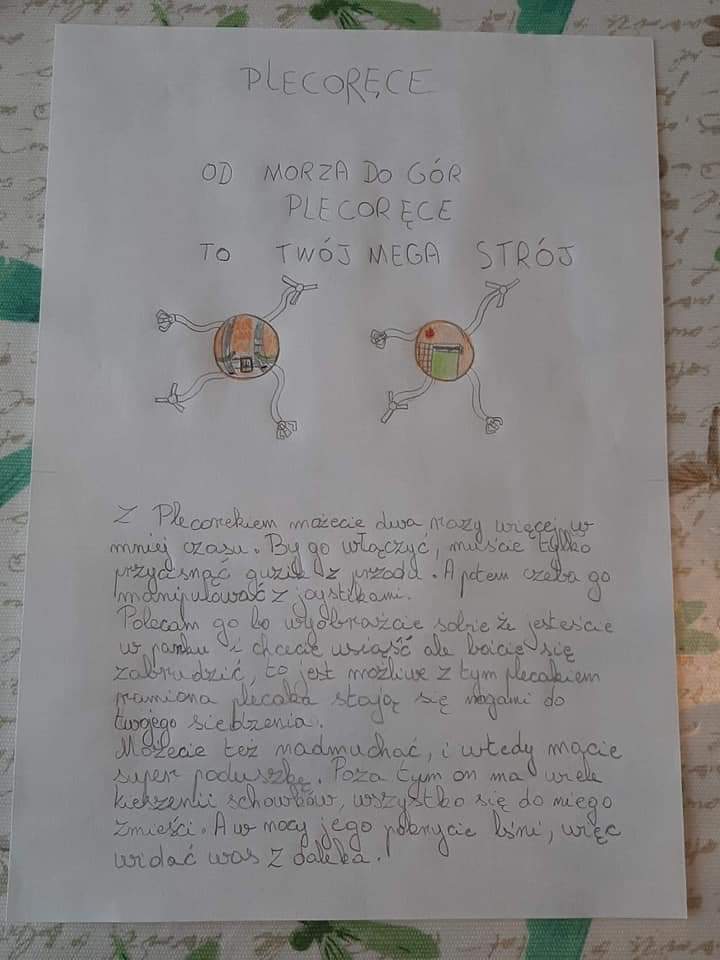 PLECORĘCE
OD MORZA DO GÓR
PLECORĘCE
TO TWÓJ MEGA STRÓJ
Z Plecorekiem możecie dwa razy więcej w
mniej czasu. By go włączyć, muście tylko
przycisnąć guzik z przodu. A potem czeba go
manipulować z joystikami.
Polecam go bo wyobraźcie sobie że jesteście
w parku i chcecie usiąść ale boicie się
zabrudzić, to jest możliwe z tym plecakiem
ramiona plecaka stają się nogami do
twojego siedzenia.
Możecie też nadmuchać, i wtedy macie
super poduszkę. Poza tym on ma wiele
kieszenii schowków, wszystko się do niego
zmieści. A w nocy jego pokrycie lśni, więc
widać was z daleka.